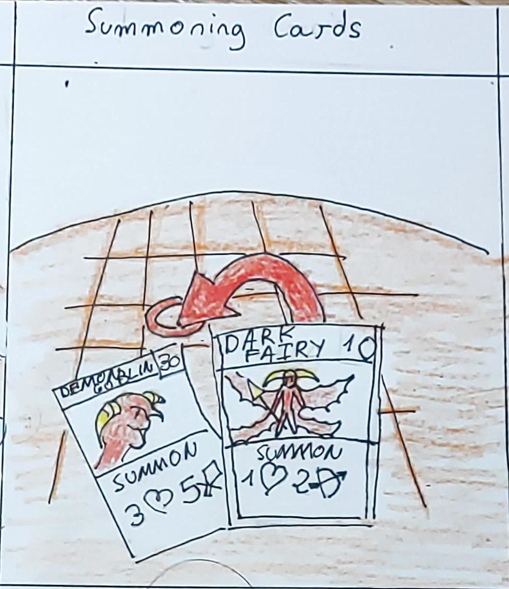 Summoning Cards
DEMON
GOBLIN 30
SUMMON
3 5
DARK
FAIRY 10
SUMMON
1 2